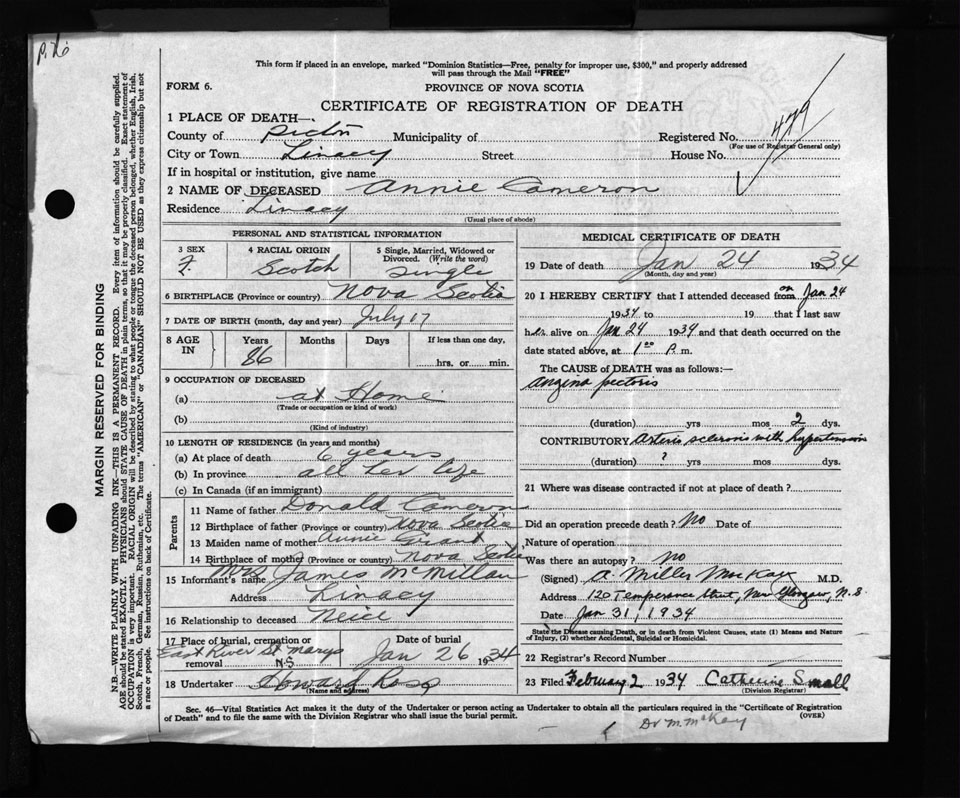 P. 76
This form if placed in an envelope, marked "Dominion Statistics—Free, penalty for improper use, $300," and properly addressed
will pass through the Mail "FREE"
FORM 6.
PROVINCE OF NOVA SCOTIA
CERTIFICATE OF REGISTRATION OF DEATH
479
1 PLACE OF DEATH—
County of Pictou Municipality of Registered No.
(For use of Registrar General only)
City or Town Linacy Street House No.
If in hospital or institution, give name
2 NAME OF DECEASED Annie Cameron
Residence Linacy
(Usual place of abode)
PERSONAL AND STATISTICAL INFORMATION
3 SEX F. 4 RACIAL ORIGIN Scotch 5 Single, Married, Widowed or Divorced. (Write the word) Single
6 BIRTHPLACE (Province or country) Nova Scotia
7 DATE OF BIRTH (month, day and year) July 17
8 AGE IN Years 86 Months Days If less than one day, hrs. or min.
9 OCCUPATION OF DECEASED
(a) at Home
(Trade or occupation or kind of work)
(b)
(Kind of industry)
10 LENGTH OF RESIDENCE (in years and months)
(a) At place of death 6 years
(b) In province all her life
(c) In Canada (if an immigrant)
Parents
11 Name of father Donald Cameron
12 Birthplace of father (Province or country) Nova Scotia
13 Maiden name of mother Annie Grant
14 Birthplace of mother (Province or country) Nova Scotia
15 Informant's name Mrs James McMillan
Address Linacy
16 Relationship to deceased Neice
17 Place of burial, cremation or removal East River St Marys N.S
Date of burial Jan 26 1934
18 Undertaker Howard Ross
(Name and address)
MEDICAL CERTIFICATE OF DEATH
19 Date of death Jan 24 1934
(Month, day and year)
20 I HEREBY CERTIFY that I attended deceased from on Jan 24
1934 to 19 that I last saw
her alive on Jan 24 1934 and that death occurred on the
date stated above, at 1 00 P. m.
The CAUSE of DEATH was as follows:—
angina pectoris
(duration) yrs mos 2 dys.
CONTRIBUTORY Arterio sclerosis with hypertension
(duration) ? yrs mos dys.
21 Where was disease contracted if not at place of death?
Did an operation precede death? No Date of
Nature of operation
Was there an autopsy? No
(Signed) A. Miller MacKay M.D.
Address 120 Temperance Street, New Glasgow, N.S.
Date Jan 31, 1934
State the Disease causing Death, or in death from Violent Causes, state (1) Means and Nature
of Injury, (2) whether Accidental, Suicidal or Homicidal.
22 Registrar's Record Number
23 Filed February 2 1934 Catherine Small
(Division Registrar)
Sec. 46—Vital Statistics Act makes it the duty of the Undertaker or person acting as Undertaker to obtain all the particulars required in the "Certificate of Registration
of Death" and to file the same with the Division Registrar who shall issue the burial permit.
(OVER)
Dr M. McKay
MARGIN RESERVED FOR BINDING
N.B.—WRITE PLAINLY WITH UNFADING INK—THIS IS A PERMANENT RECORD. Every item of information should be carefully supplied.
AGE should be stated EXACTLY. PHYSICIANS should STATE CAUSE OF DEATH in plain terms, so that it may be properly classified. Exact statement of
OCCUPATION is very important. RACIAL ORIGIN will be described by stating to what people or tongue the deceased person belonged, whether English, Irish,
Scotch, French, German, Russian, Ruthenian, etc. The terms "AMERICAN" or "CANADIAN" SHOULD NOT BE USED as they express citizenship but not
a race or people. See instructions on back of Certificate.